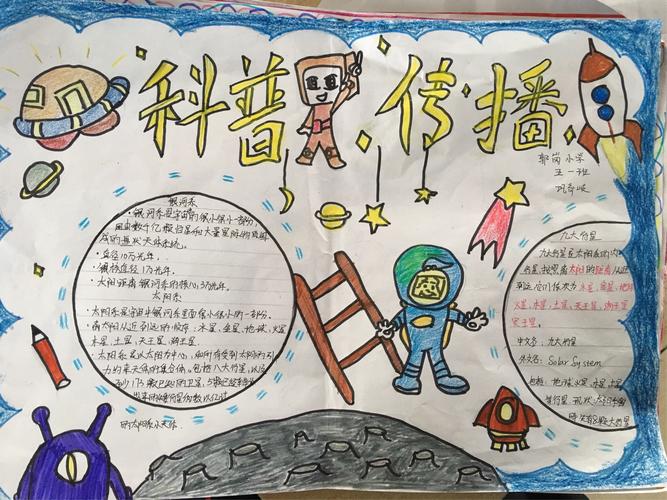 科普传播
郭岗小学
五一班
银河系
·银河系是宇宙的很小很小一部分,
由数千亿颗恒星和大量星际物质组
成的盘状天体系统。
·直径10万光年.
·太阳距离银河系的核心,
太阳系
·太阳系是宇宙中银河系里面很小很小的一部分.
·离太阳从近到远的顺序:水星、金星、地球、火星
木星、土星、天王星、海王星
·太阳系是以太阳为中心,和所有受到太阳的引
力约束天体的集合体。包括八大行星,以及
的太阳系小天体.
九大行星
九大行星是太阳系的内
行星,按照离太阳的距离从近
到远,它们依次为水星、金星、地球
火星、木星、土星、天王星、海王星
冥王星。
中文名:九大行星
外文名:Solar System